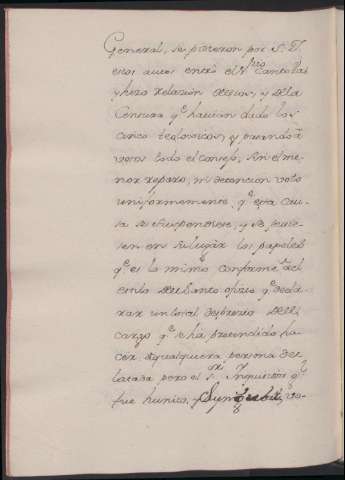 General, se pusieron por S. E.
estos autos entró el Sr. Cantolla
y hizo relacion de ellos, y de la
Censura qe. havian dado los
cinco teologicos, y pasando a
votos todo el Consejo, sin el me
nor reparo, ni detencion voto
uniformemente, qe. esta cau
sa se suspendiese, y se pusie
sen en su lugar los papeles
qe. es lo mismo conforme al
estilo del Santo oficio qe. decla
rar un total desprecio del
cargo qe. se ha pretendido ha
cer, a qualquiera persona de
latada pero el Sr. Inquisidor Gl.
fue hunico,